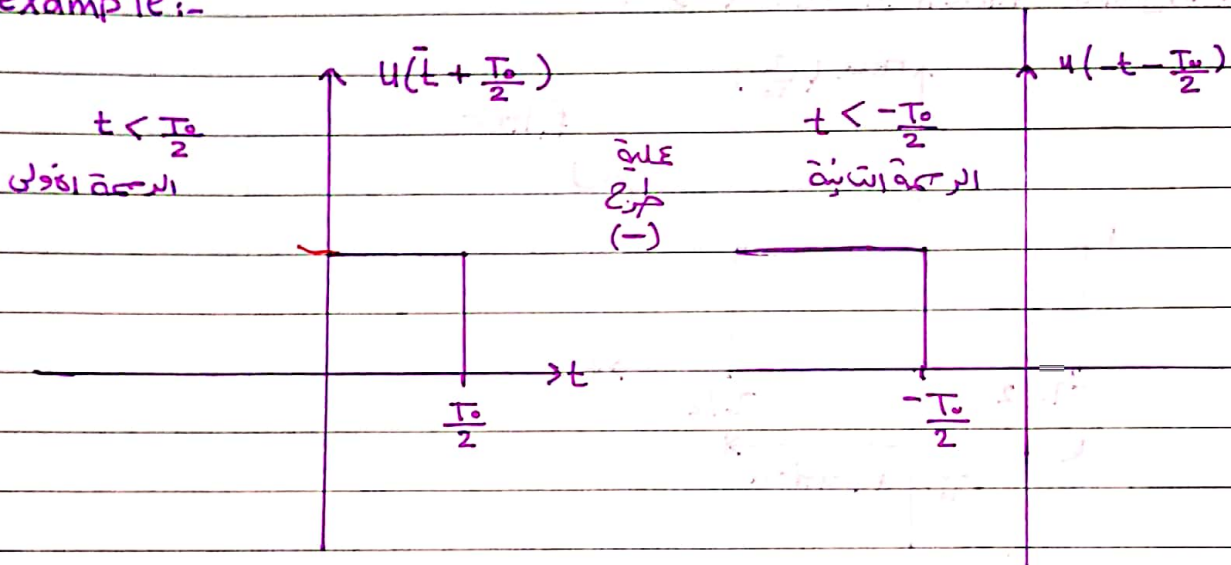 example:-
u(-t + T₀/2)
t < T₀/2
الرسمة الأولى
علية
طرح
(-)
u(-t - T₀/2)
t < -T₀/2
الرسمة التانية
t
T₀/2
-T₀/2